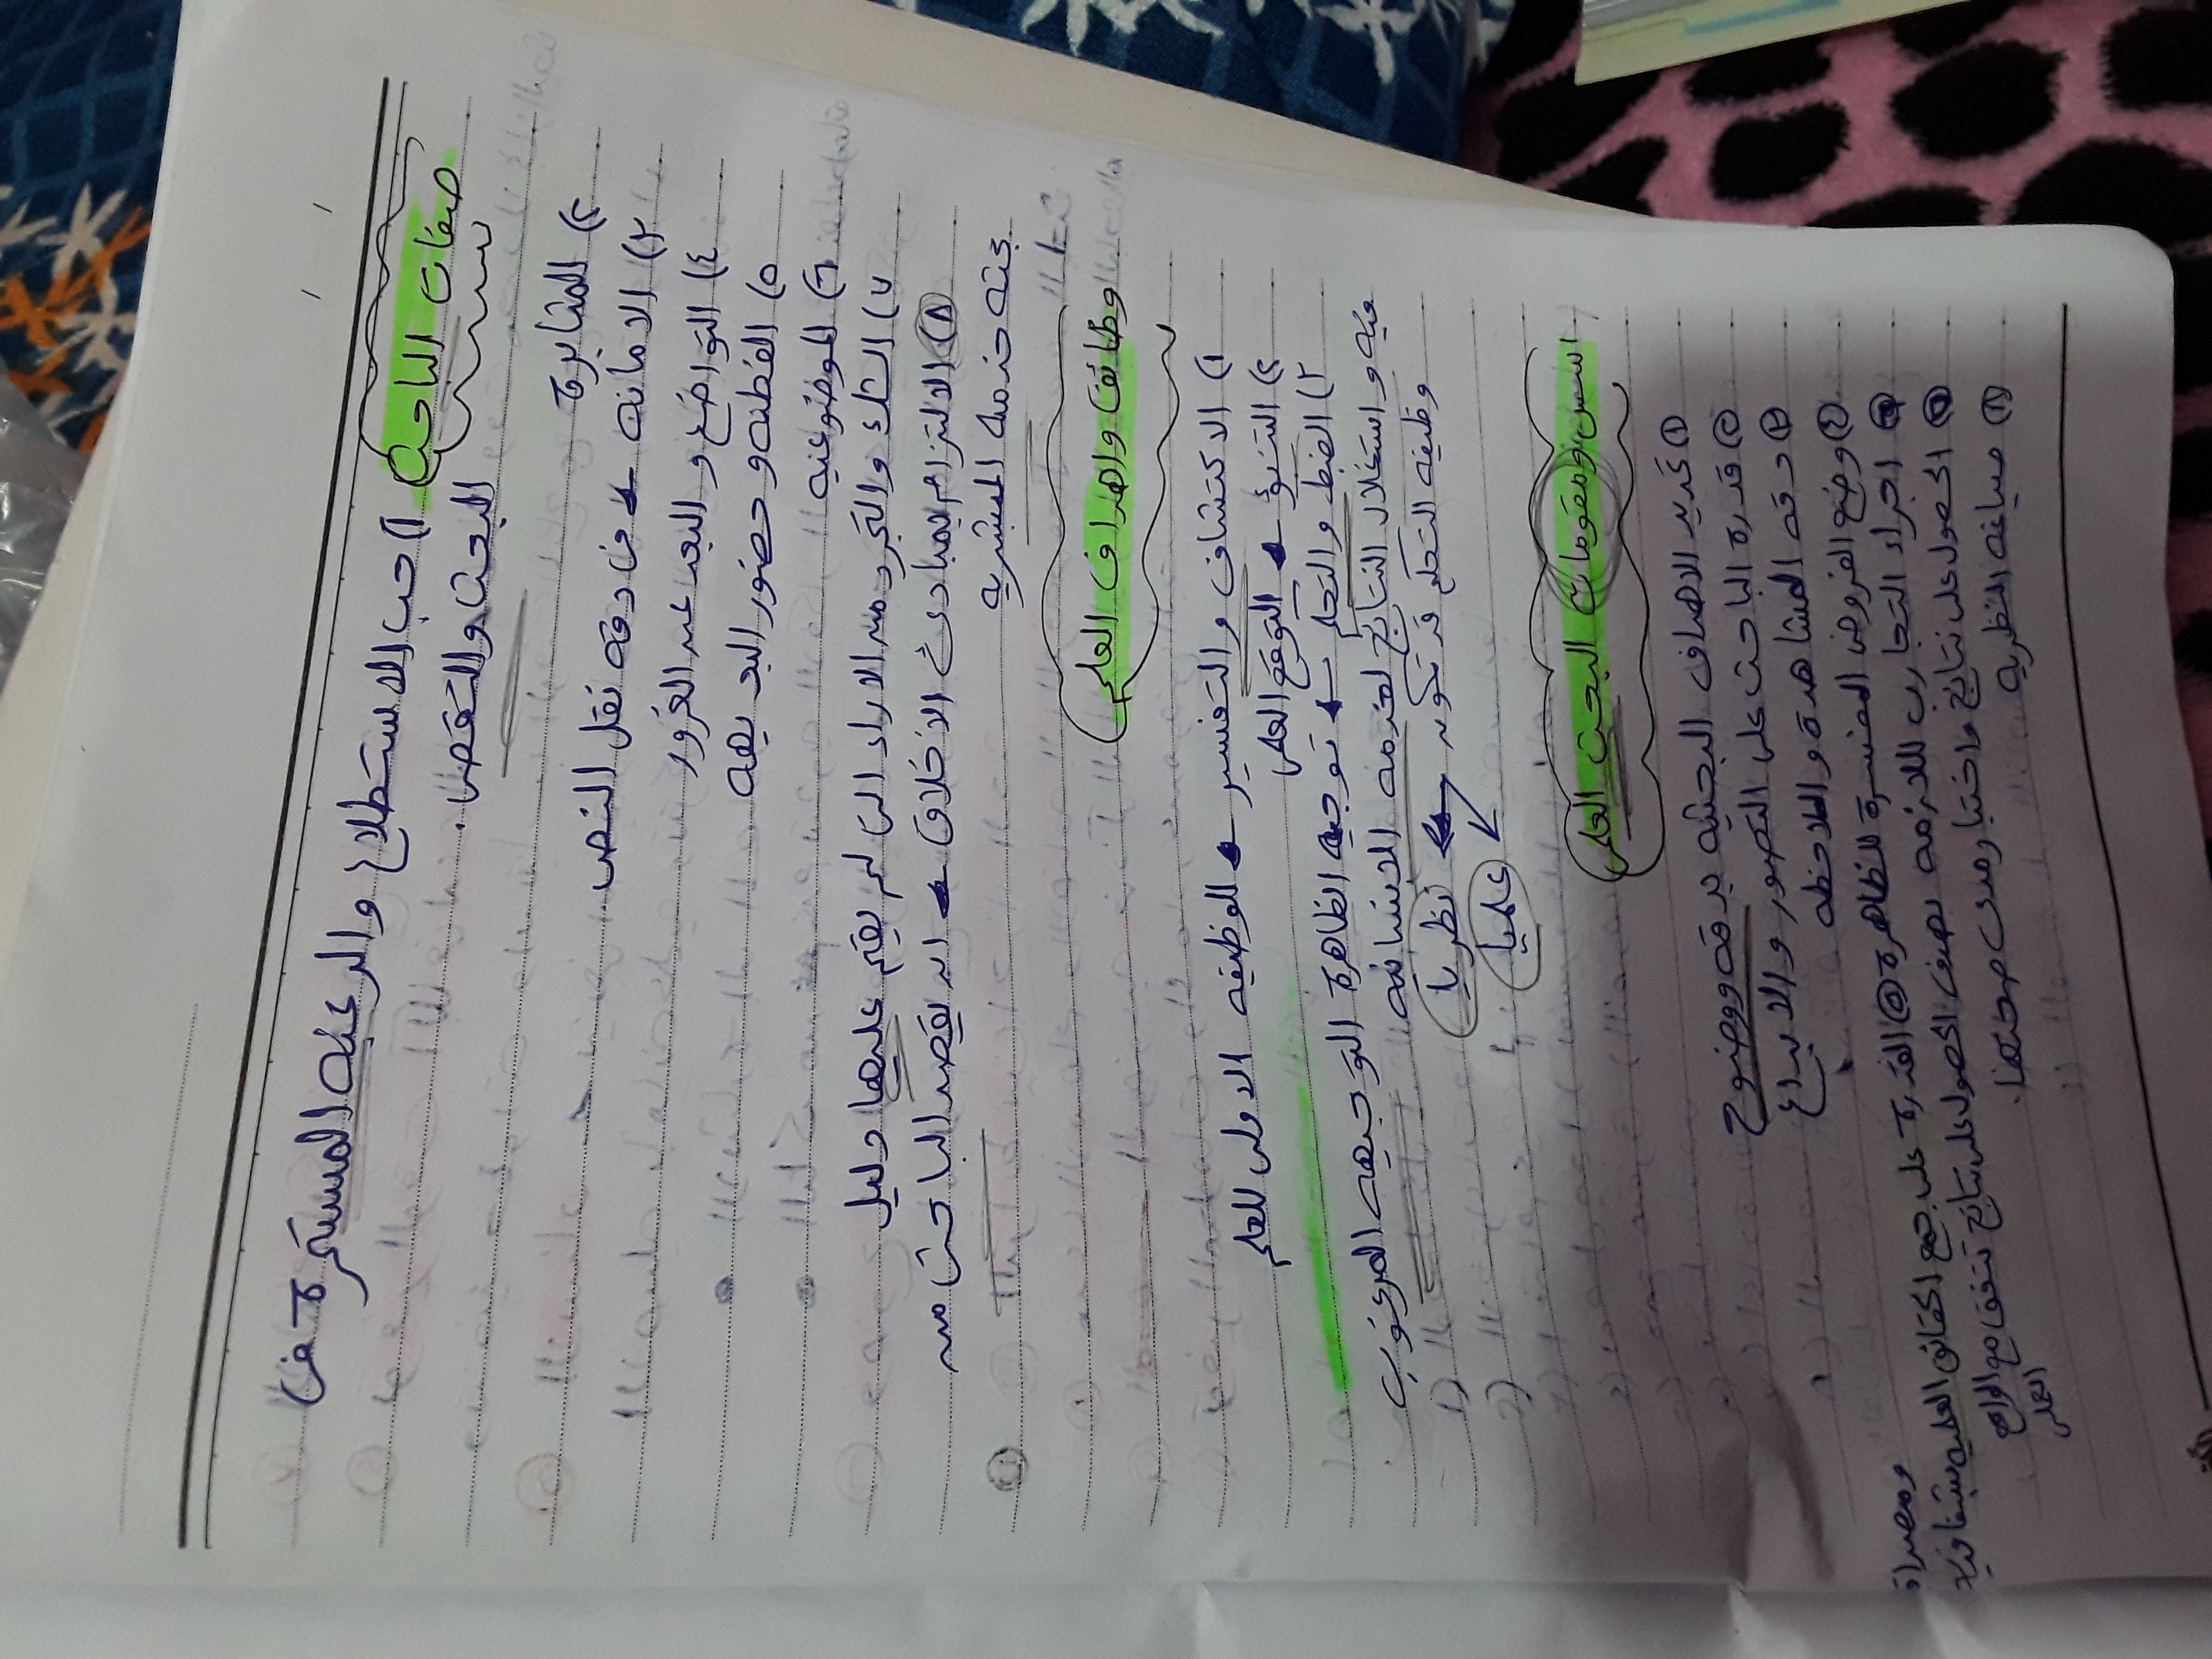 صفات الباحث ١) حب الاستطلاع والرغبه المستمرة فى
البحث والتقصى .
٢) المثابرة
٣) الامانه ← فى دقه نقل النص
٤) التواضع و البعد عن الغرور
٥) الفطنه و حضور البديهه
٦) الموضوعيه
٧) الشك والتجرد من الاراء التى لم يقم عليها دليل
٨) الالتزام بمبادئ الاخلاق ← ان يقصد الباحث من
بحثه خدمه البشريه
وظائف واهداف العلم
١) الاكتشاف والتفسير ← الوظيفه الاولى للعلم
٢) التنبؤ ← التوقع العلمى
٣) الضبط والتحكم ← توجيه الظاهرة التوجيهه المرغوب
فيه و استغلال النتائج لخدمه الانسانيه
وظيفه التحكم قد تكون ← نظريا
علميا
اسس ومقومات البحث العلمى
١ تحديد الاهداف البحثيه بدقه ووضوح
٢ قدرة الباحث على التصور والابداع
٣ دقه المشاهدة والملاحظه
٤ وضع الفروض المفسرة للظاهرة ٥ القدرة على جمع الحقائق العلميه بشفافية
٦ اجراء التجارب اللازمه بهدف الحصول على نتائج تتفق مع الواقع
العملى
٧ الحصول على نتائج واختبار مدى صحتها .
٨ صياغه النظريه